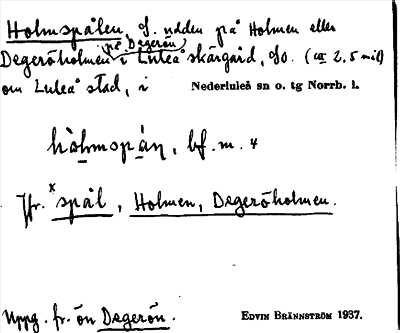 Holmspålen, Ö. udden på Holmen eller
på Degerön
Degeröholmen i Luleå skärgård, SO. (ca 2,5 mil)
om Luleå stad, i Nederluleå sn o. tg Norrb. l.
hòlmspån, bf. m. 4
Jfr. ˣspål, Holmen, Degeröholmen.
Uppg. fr. ön Degerön. EDVIN BRÄNNSTRÖM 1937.